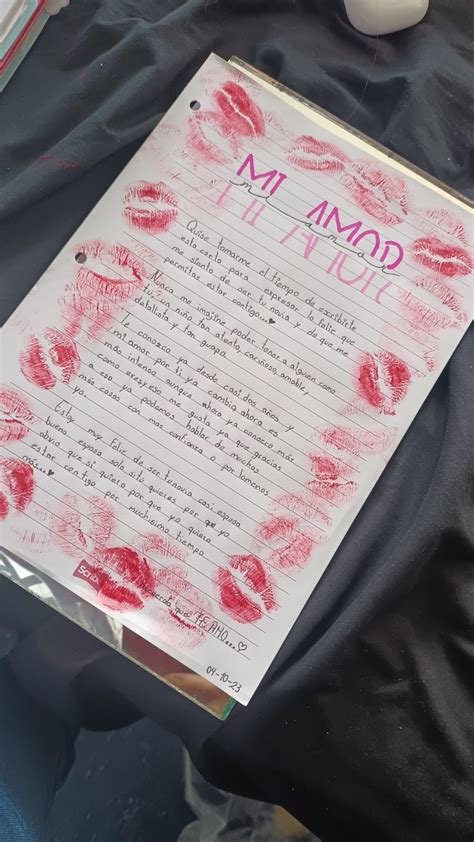 MI AMOR
mi amor
Quise tomarme el tiempo de escribirte
esta carta para expresar lo feliz que
me siento de ser tu novia y de que me
permitas estar contigo...♥
Nunca me imagine poder tener a alguien como
tú, un niño tan atento, cariñoso, amable,
detallista y tan guapo.
Te conozco ya desde casi dos años y
mi amor por ti ya cambio ahora es
más intenso aunque ahora ya conozco más
como eres, y eso me gusta ya que gracias
a eso ya podemos hablar de muchas
más cosas con mas confianza o por lomenos
yo.
Estoy muy feliz de ser tu novia casi esposa
bueno esposa solo sitú quieres por que yo
obvio que si quiero por que yo quiero
estar contigo por muchisimo tiempo
mas...♥
que TE AMO...♡
04-10-23